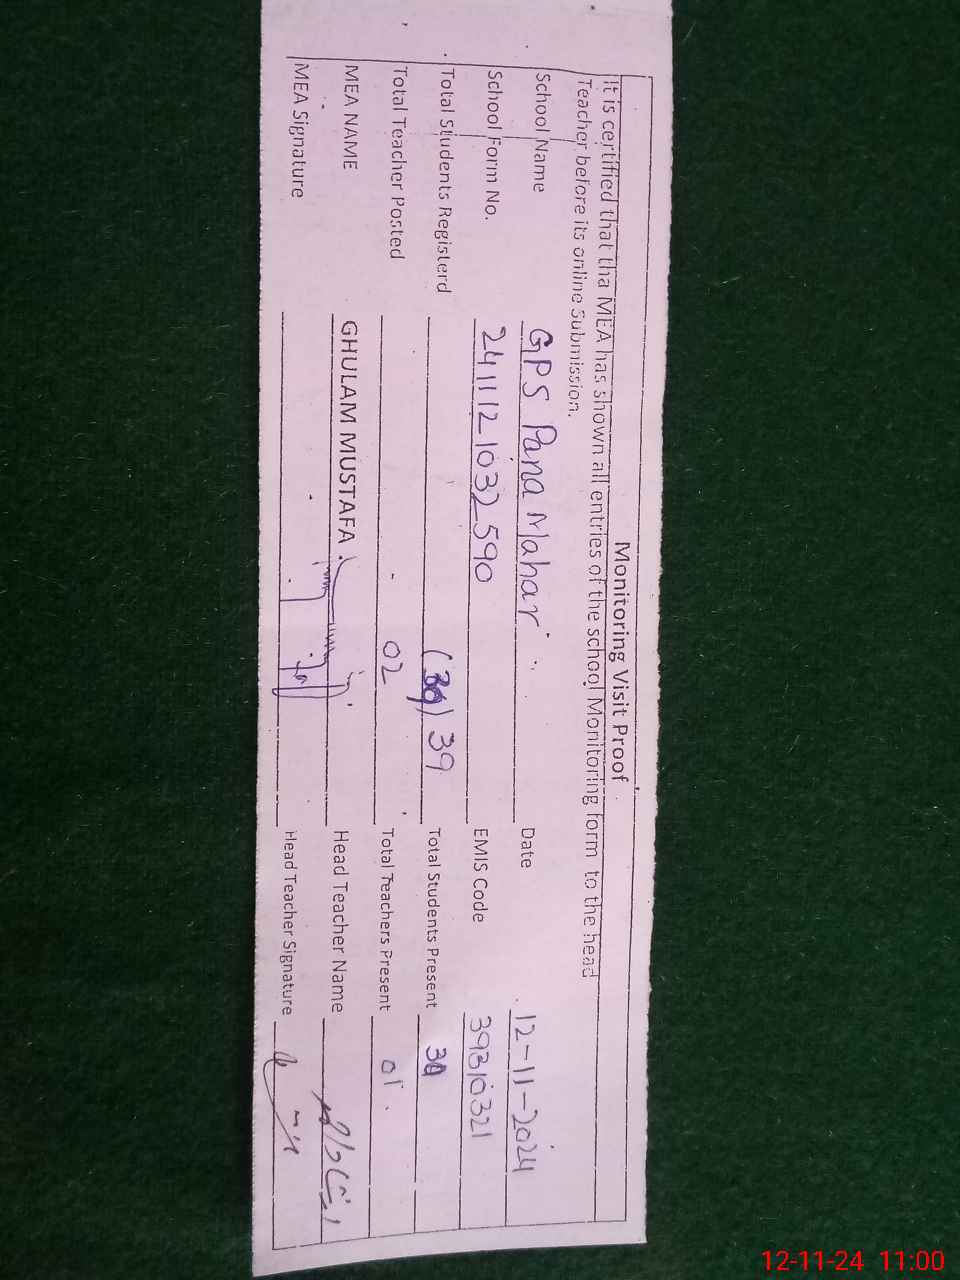 Monitoring Visit Proof
It is certified that tha MEA has shown all entries of the school Monitoring form to the head
Teacher before its online submission.
School Name GPS Pana Mahar Date 12-11-2024
School Form No. 2411121032590 EMIS Code 39310321
Total Students Registerd 39 Total Students Present
Total Teacher Posted 02 Total Teachers Present 01
MEA NAME GHULAM MUSTAFA Head Teacher Name
MEA Signature Head Teacher Signature
12-11-24 11:00